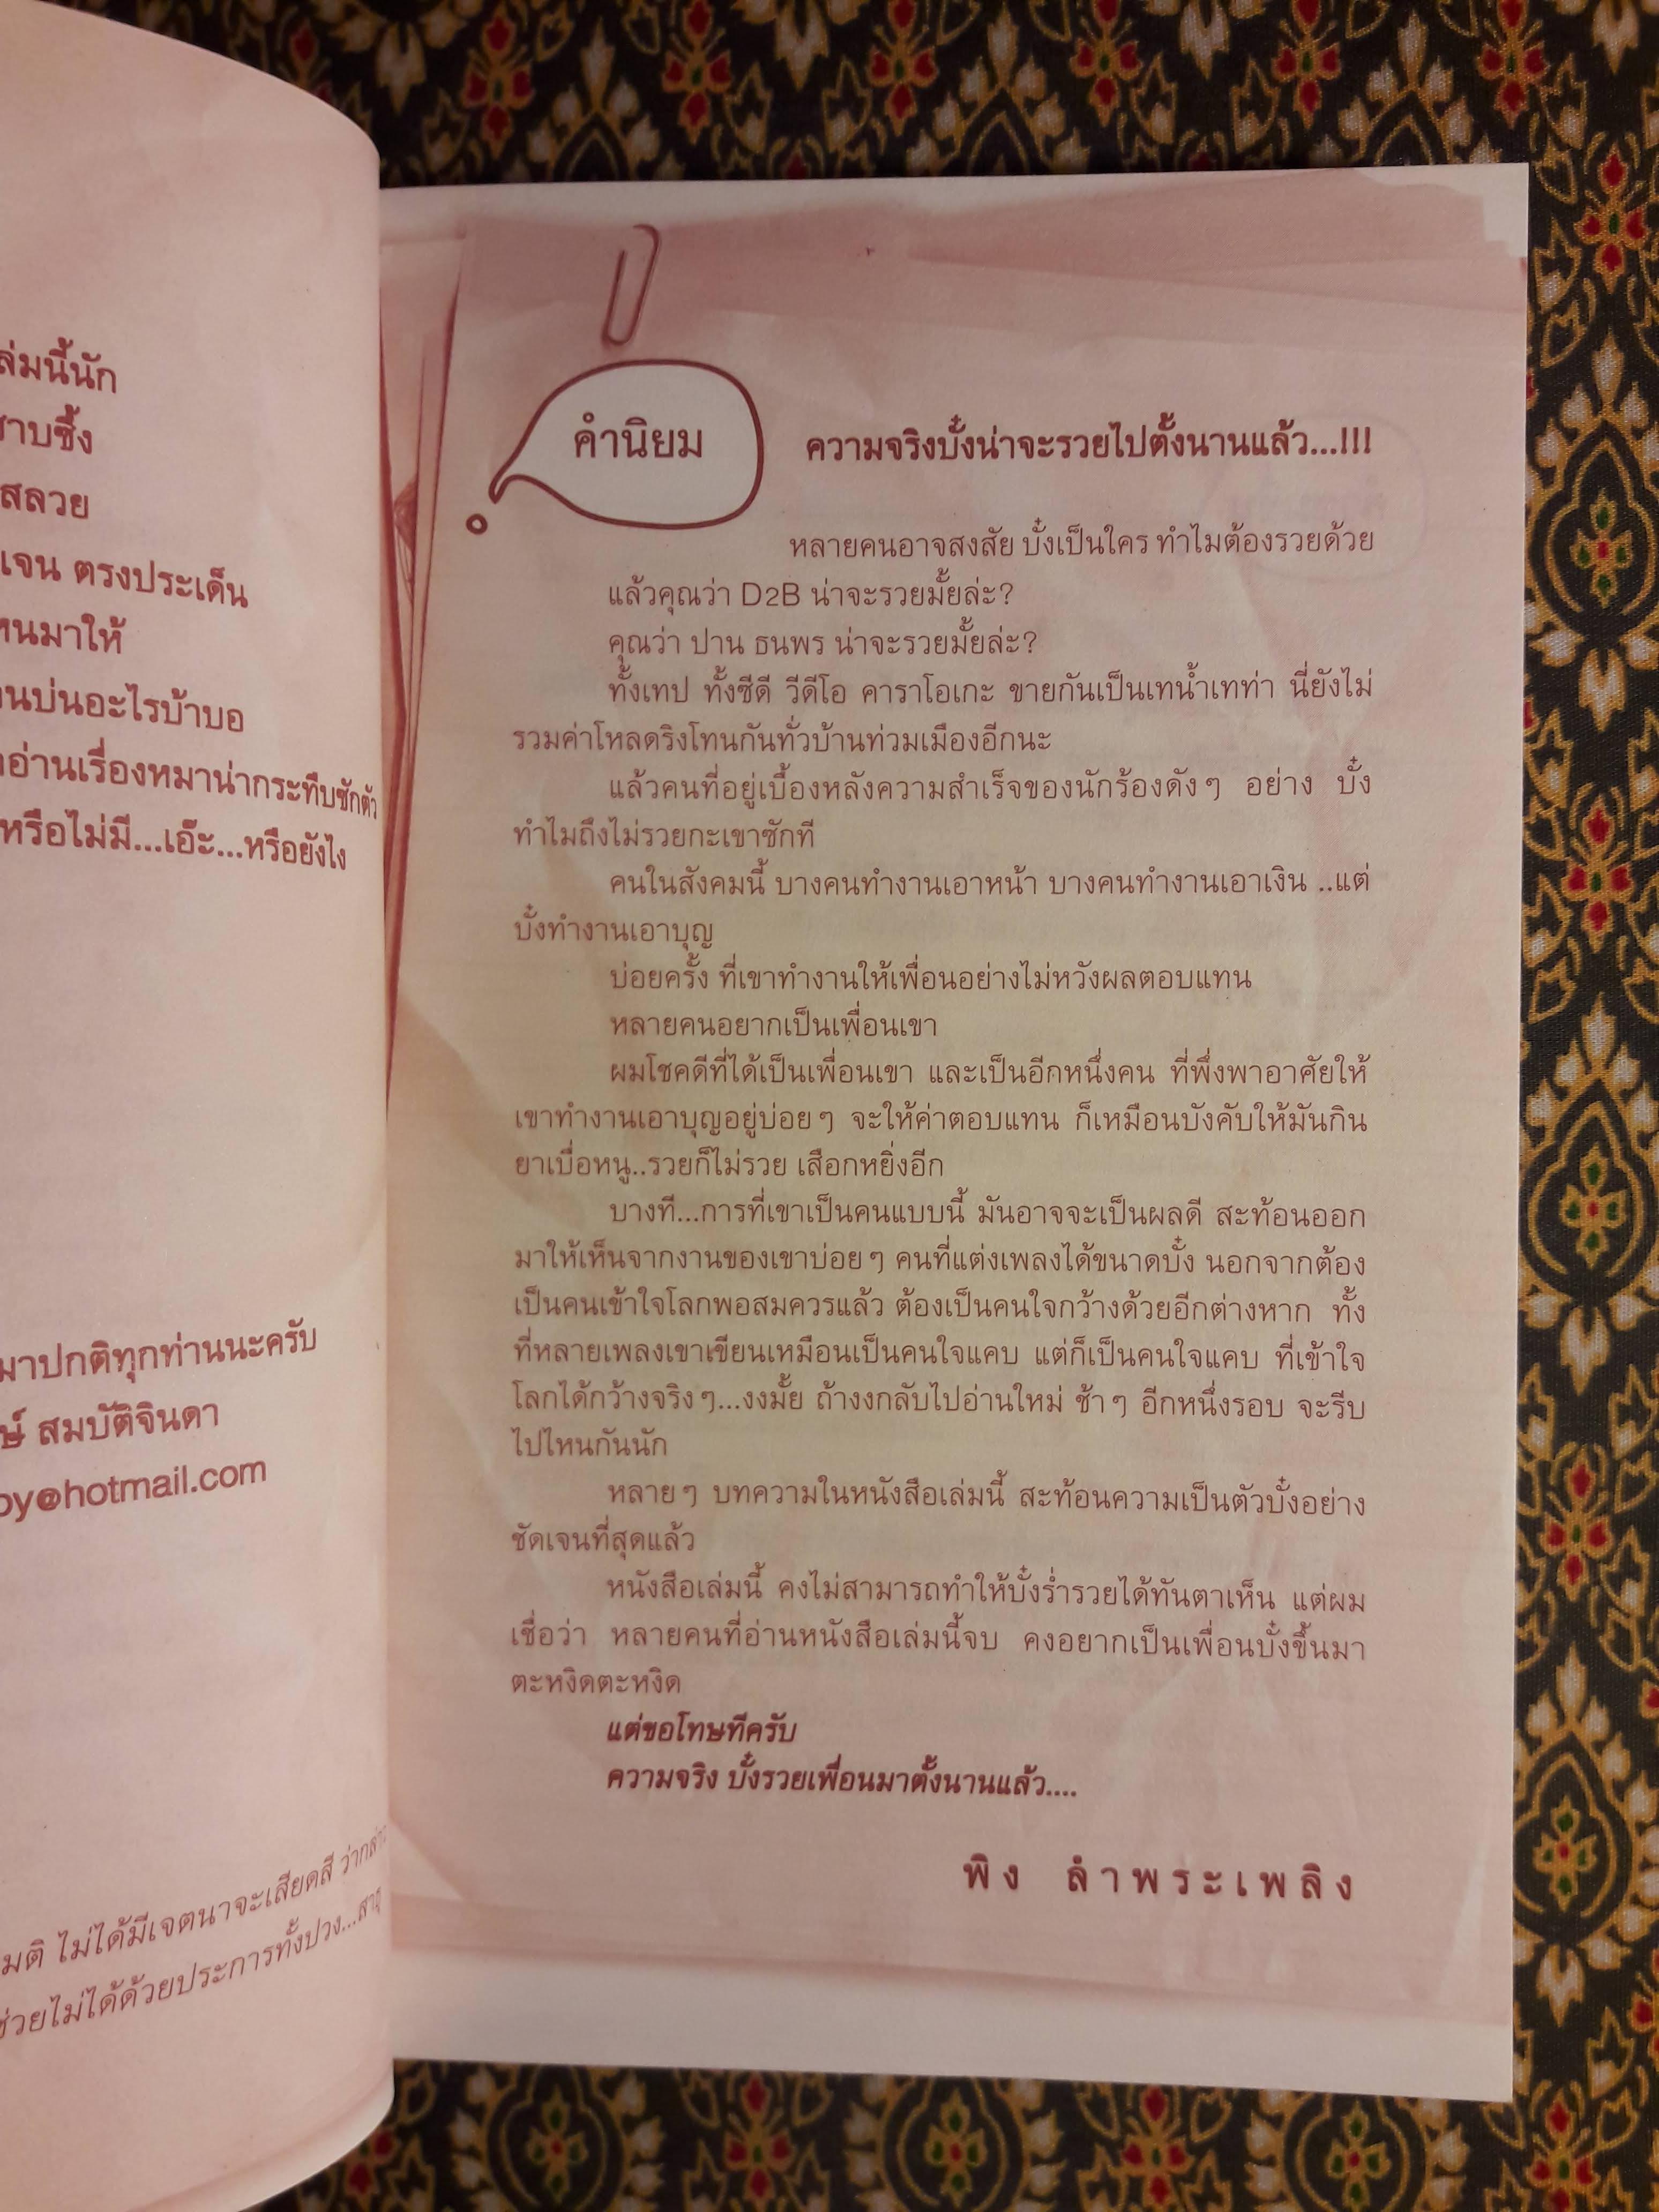 ล่มนี้นัก
าบซึ้ง
สลวย
เจน ตรงประเด็น
หนมาให้
นบ่นอะไรบ้าบอ
อ่านเรื่องหมาน่ากระทืบซักตัว
หรือไม่มี...เอ๊ะ...หรือยังไง
มาปกติทุกท่านนะครับ
ษ์ สมบัติจินดา
oy@hotmail.com
มติ ไม่ได้มีเจตนาจะเสียดสี ว่ากล่าว
ช่วยไม่ได้ด้วยประการทั้งปวง...สาธุ
คำนิยม
ความจริงบั๋งน่าจะรวยไปตั้งนานแล้ว...!!!
หลายคนอาจสงสัย บั๋งเป็นใคร ทำไมต้องรวยด้วย
แล้วคุณว่า D2B น่าจะรวยมั้ยล่ะ?
คุณว่า ปาน ธนพร น่าจะรวยมั้ยล่ะ?
ทั้งเทป ทั้งซีดี วีดีโอ คาราโอเกะ ขายกันเป็นเทน้ำเทท่า นี่ยังไม่
รวมค่าโหลดริงโทนกันทั่วบ้านท่วมเมืองอีกนะ
แล้วคนที่อยู่เบื้องหลังความสำเร็จของนักร้องดังๆ อย่าง บั๋ง
ทำไมถึงไม่รวยกะเขาซักที
คนในสังคมนี้ บางคนทำงานเอาหน้า บางคนทำงานเอาเงิน ..แต่
บั๋งทำงานเอาบุญ
บ่อยครั้ง ที่เขาทำงานให้เพื่อนอย่างไม่หวังผลตอบแทน
หลายคนอยากเป็นเพื่อนเขา
ผมโชคดีที่ได้เป็นเพื่อนเขา และเป็นอีกหนึ่งคน ที่พึ่งพาอาศัยให้
เขาทำงานเอาบุญอยู่บ่อยๆ จะให้ค่าตอบแทน ก็เหมือนบังคับให้มันกิน
ยาเบื่อหนู..รวยก็ไม่รวย เสือกหยิ่งอีก
บางที...การที่เขาเป็นคนแบบนี้ มันอาจจะเป็นผลดี สะท้อนออก
มาให้เห็นจากงานของเขาบ่อยๆ คนที่แต่งเพลงได้ขนาดบั๋ง นอกจากต้อง
เป็นคนเข้าใจโลกพอสมควรแล้ว ต้องเป็นคนใจกว้างด้วยอีกต่างหาก ทั้ง
ที่หลายเพลงเขาเขียนเหมือนเป็นคนใจแคบ แต่ก็เป็นคนใจแคบ ที่เข้าใจ
โลกได้กว้างจริงๆ...งงมั้ย ถ้างงกลับไปอ่านใหม่ ช้าๆ อีกหนึ่งรอบ จะรีบ
ไปไหนกันนัก
หลายๆ บทความในหนังสือเล่มนี้ สะท้อนความเป็นตัวบั๋งอย่าง
ชัดเจนที่สุดแล้ว
หนังสือเล่มนี้ คงไม่สามารถทำให้บั๋งร่ำรวยได้ทันตาเห็น แต่ผม
เชื่อว่า หลายคนที่อ่านหนังสือเล่มนี้จบ คงอยากเป็นเพื่อนบั๋งขึ้นมา
ตะหงิดตะหงิด
แต่ขอโทษทีครับ
ความจริง บั๋งรวยเพื่อนมาตั้งนานแล้ว....
พิง ลำพระเพลิง